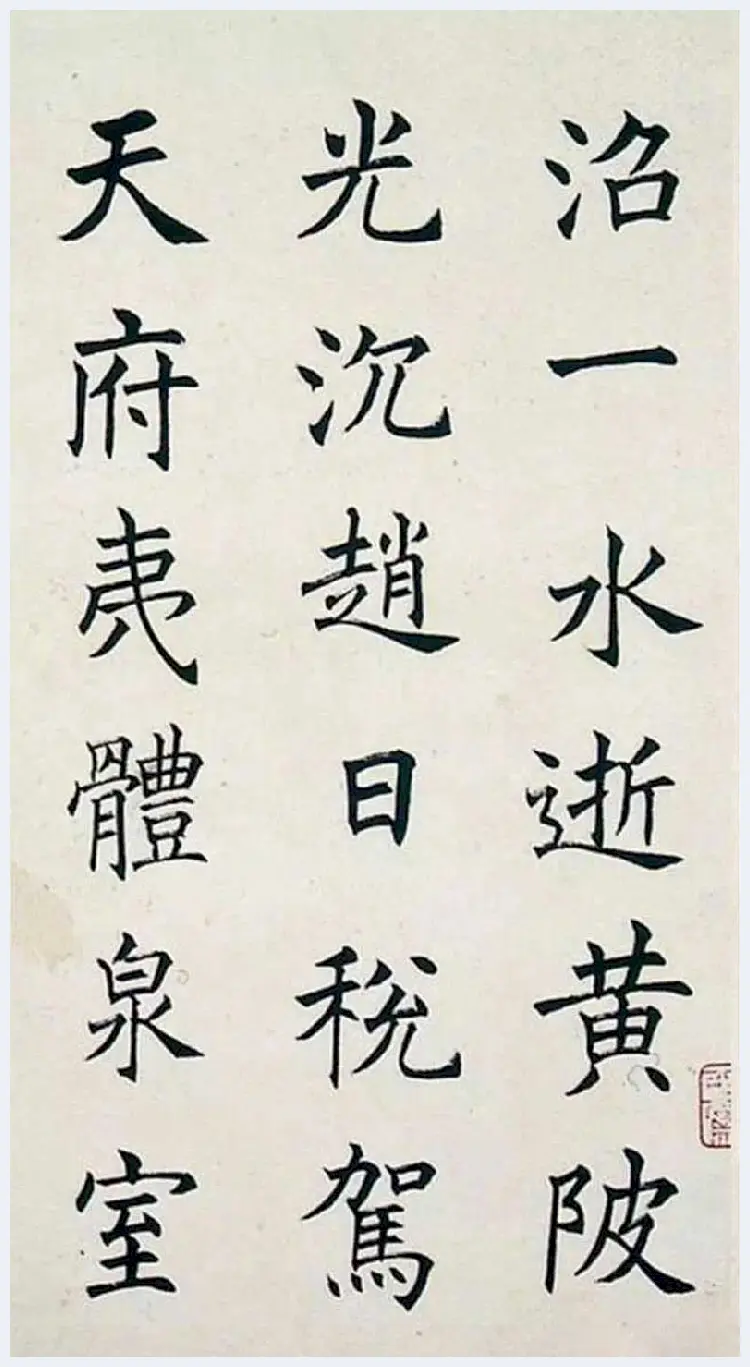 沼一水逝黃陂
光沉趙日稅駕
天府夷體泉室